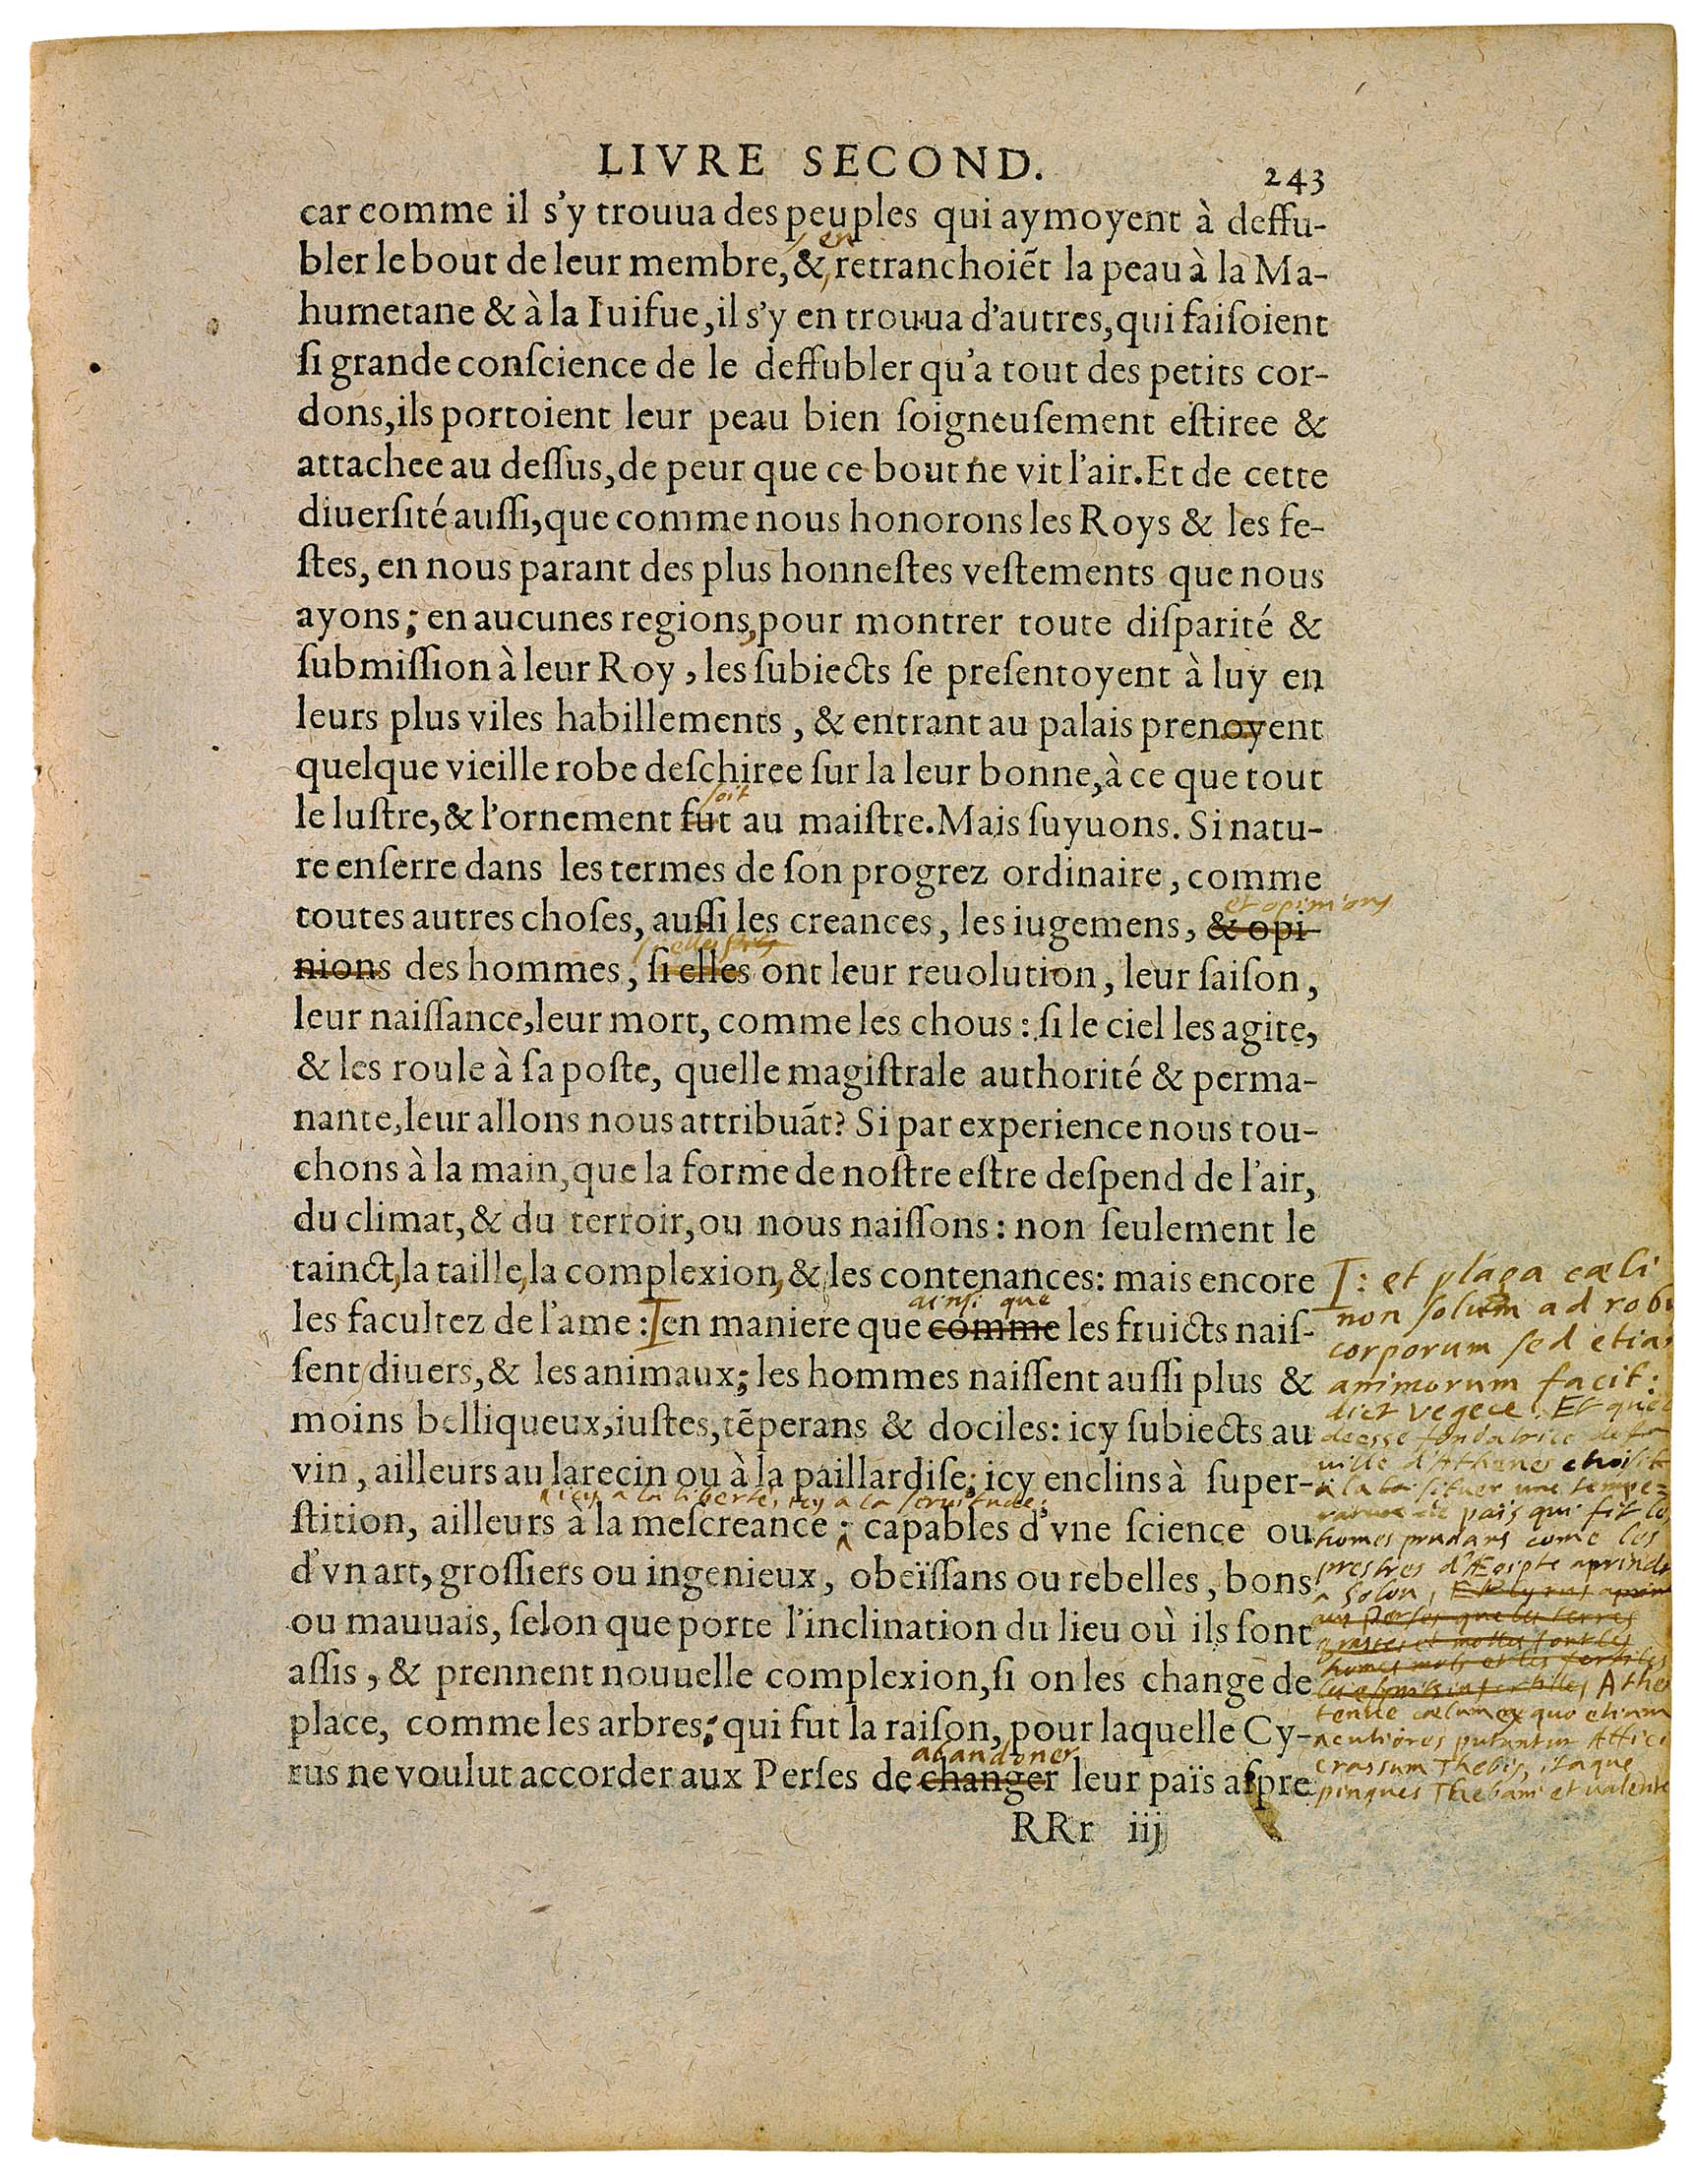 LIVRE SECOND.
243
car comme il s'y trouua des peuples qui aymoyent à deffu-
en
bler le bout de leur membre, & retranchoiẽt la peau à la Ma-
humetane & à la Iuifue, il s'y en trouua d'autres, qui faiſoient
ſi grande conſcience de le deffubler qu'a tout des petits cor-
dons, ils portoient leur peau bien ſoigneuſement eſtiree &
attachee au deſſus, de peur que ce bout ne vit l'air. Et de cette
diuerſité auſſi, que comme nous honorons les Roys & les fe-
ſtes, en nous parant des plus honneſtes veſtements que nous
ayons; en aucunes regions, pour montrer toute diſparité &
ſubmiſſion à leur Roy, les ſubiects ſe preſentoyent à luy en
leurs plus viles habillements, & entrant au palais prenoyent
quelque vieille robe deſchiree ſur la leur bonne, à ce que tout
soit
le luſtre, & l'ornement fut au maiſtre. Mais ſuyuons. Si natu-
re enſerre dans les termes de ſon progrez ordinaire, comme
et opinions
toutes autres choſes, auſſi les creances, les iugemens, & opi-
nions des hommes, ſi elles ont leur reuolution, leur ſaiſon,
leur naiſſance, leur mort, comme les chous: ſi le ciel les agite,
& les roule à ſa poſte, quelle magiſtrale authorité & perma-
nante, leur allons nous attribuãt? Si par experience nous tou-
chons à la main, que la forme de noſtre eſtre deſpend de l'air,
du climat, & du terroir, ou nous naiſſons: non ſeulement le
tainct, la taille, la complexion, & les contenances: mais encore
ainsi que
les facultez de l'ame: en maniere que comme les fruicts naiſ-
ſent diuers, & les animaux; les hommes naiſſent auſſi plus &
moins belliqueux, iuſtes, tẽperans & dociles: icy ſubiects au
vin, ailleurs au larecin ou à la paillardiſe; icy enclins à ſuper-
icy a la liberté, icy a la servitude;
ſtition, ailleurs à la meſcreance; capables d'vne ſcience ou
d'vn art, groſſiers ou ingenieux, obeïſſans ou rebelles, bons
ou mauuais, ſelon que porte l'inclination du lieu où ils ſont
aſſis, & prennent nouuelle complexion, ſi on les change de
place, comme les arbres; qui fut la raiſon, pour laquelle Cy-
abandoner
rus ne voulut accorder aux Perſes de changer leur païs aſpre
RRr iij
: et plaga cæli
non solum ad robu
corporum sed etia
animorum facit:
dict Vegece. Et que
deesse fondatrice de sa
ville d'Athenes choisit
a la situer une tempe=
rature de païs qui fit les
homes prudans come les
prestres d'Ægipte aprindr
a Solon, Athe
tenue cælum ex quo etiam
acutiores putantur Attici
crassum Thebis, itaque
pingues Thebani et valente